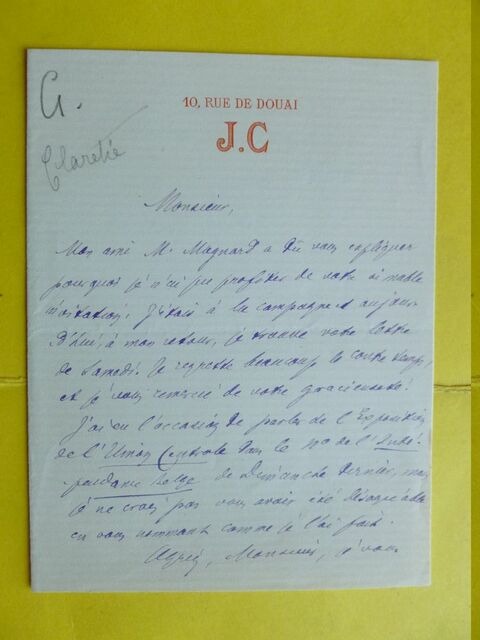 G.
Claretie
10, RUE DE DOUAI
J.C
Monsieur,
Mon ami M. Magnard a dû vous expliquer
pourquoi je n'ai pu profiter de votre aimable
invitation. J'étais à la campagne et aujour-
d'hui, à mon retour, je trouve votre lettre
de Samedi. Je regrette beaucoup le contretemps,
et je vous remercie de votre gracieuseté.
J'ai eu l'occasion de parler de l'Exposition
de l'Union Centrale dans le no de l'Indé-
pendance belge de Dimanche dernier, mais
je ne crois pas vous avoir été désagréable
en vous nommant comme je l'ai fait.
Agréez, Monsieur, je vous